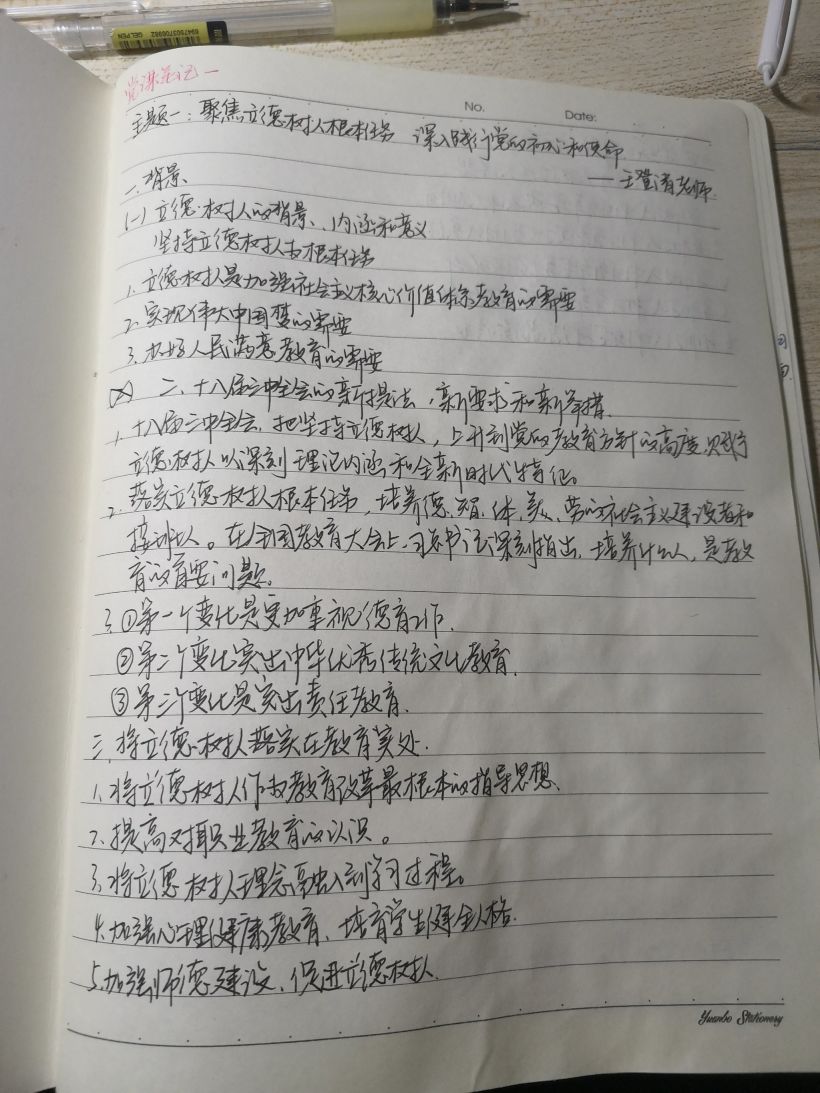 6947503706982
GELPEN
党课笔记一
No.
Date:
主题一：聚焦立德树人根本任务 深入践行党的初心和使命
——王老师
一、背景
(一) 立德树人的背景、内涵和意义
坚持立德树人为根本任务
1. 立德树人是加强社会主义核心价值体系教育的需要
2. 实现伟大中国梦的需要
3. 办好人民满意教育的需要
二、十八届三中全会的新提法，新要求和新举措.
1. 十八届三中全会，把坚持立德树人，上升到党的教育方针的高度，赋予
立德树人以深刻理论内涵和全新时代特征。
2. 落实立德树人根本任务，培养德、智、体、美、劳的社会主义建设者和
接班人。在全国教育大会上，习总书记深刻指出，培养什么人，是教
育的首要问题。
3. ①第一个变化是更加重视德育工作.
②第二个变化突出中华优秀传统文化教育.
③第三个变化是突出责任教育.
三、将立德树人落实在教育实处.
1. 将立德树人作为教育改革最根本的指导思想.
2. 提高对职业教育的认识。
3. 将立德树人理念融入到学习过程。
4. 加强心理健康教育、培育学生健全人格.
5. 加强师德建设、促进立德树人.
Yuanbo Stationery